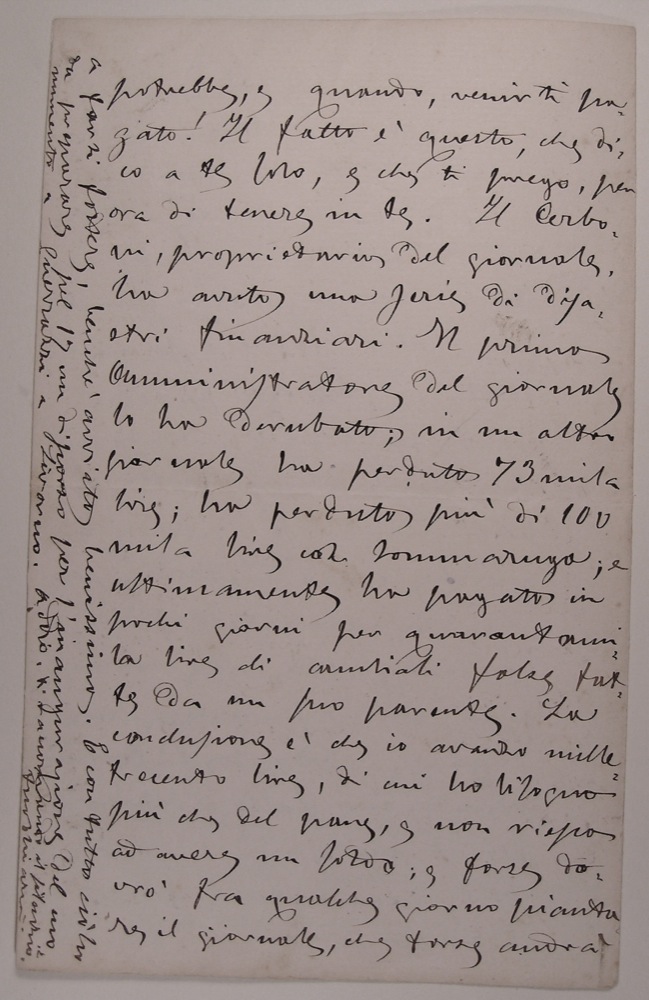 potrebbe, e quando, venirti pa-
gato! Il fatto è questo, che di-
co a te solo, e che ti prego, per
ora di tenere in te. Il Cerbo-
ni, proprietario del giornale,
ha avuto una serie di disa-
stri finanziari. Il primo
Amministratore del giornale
lo ha derubato; in un altro
giornale ha perduto 73 mila
lire; ha perduto più di 100
mila lire col Sommaruga; e
ultimamente ha pagato in
pochi giorni per quarantami-
la lire di cambiali false fat-
te da un suo parente. La
conclusione è che io avanzo mille
trecento lire, di cui ho bisogno
più che del pane, e non riesco
ad avere un soldo; e forse do-
vrò fra qualche giorno pianta
re il giornale, che forse andrà
a farsi fottere, benchè avviato benissimo. E con tutto ciò ho
da preparare pel 17 un discorso per l'inaugurazione del mo
numento a Guerrazzi a Livorno. Addio. Ti raccomando il